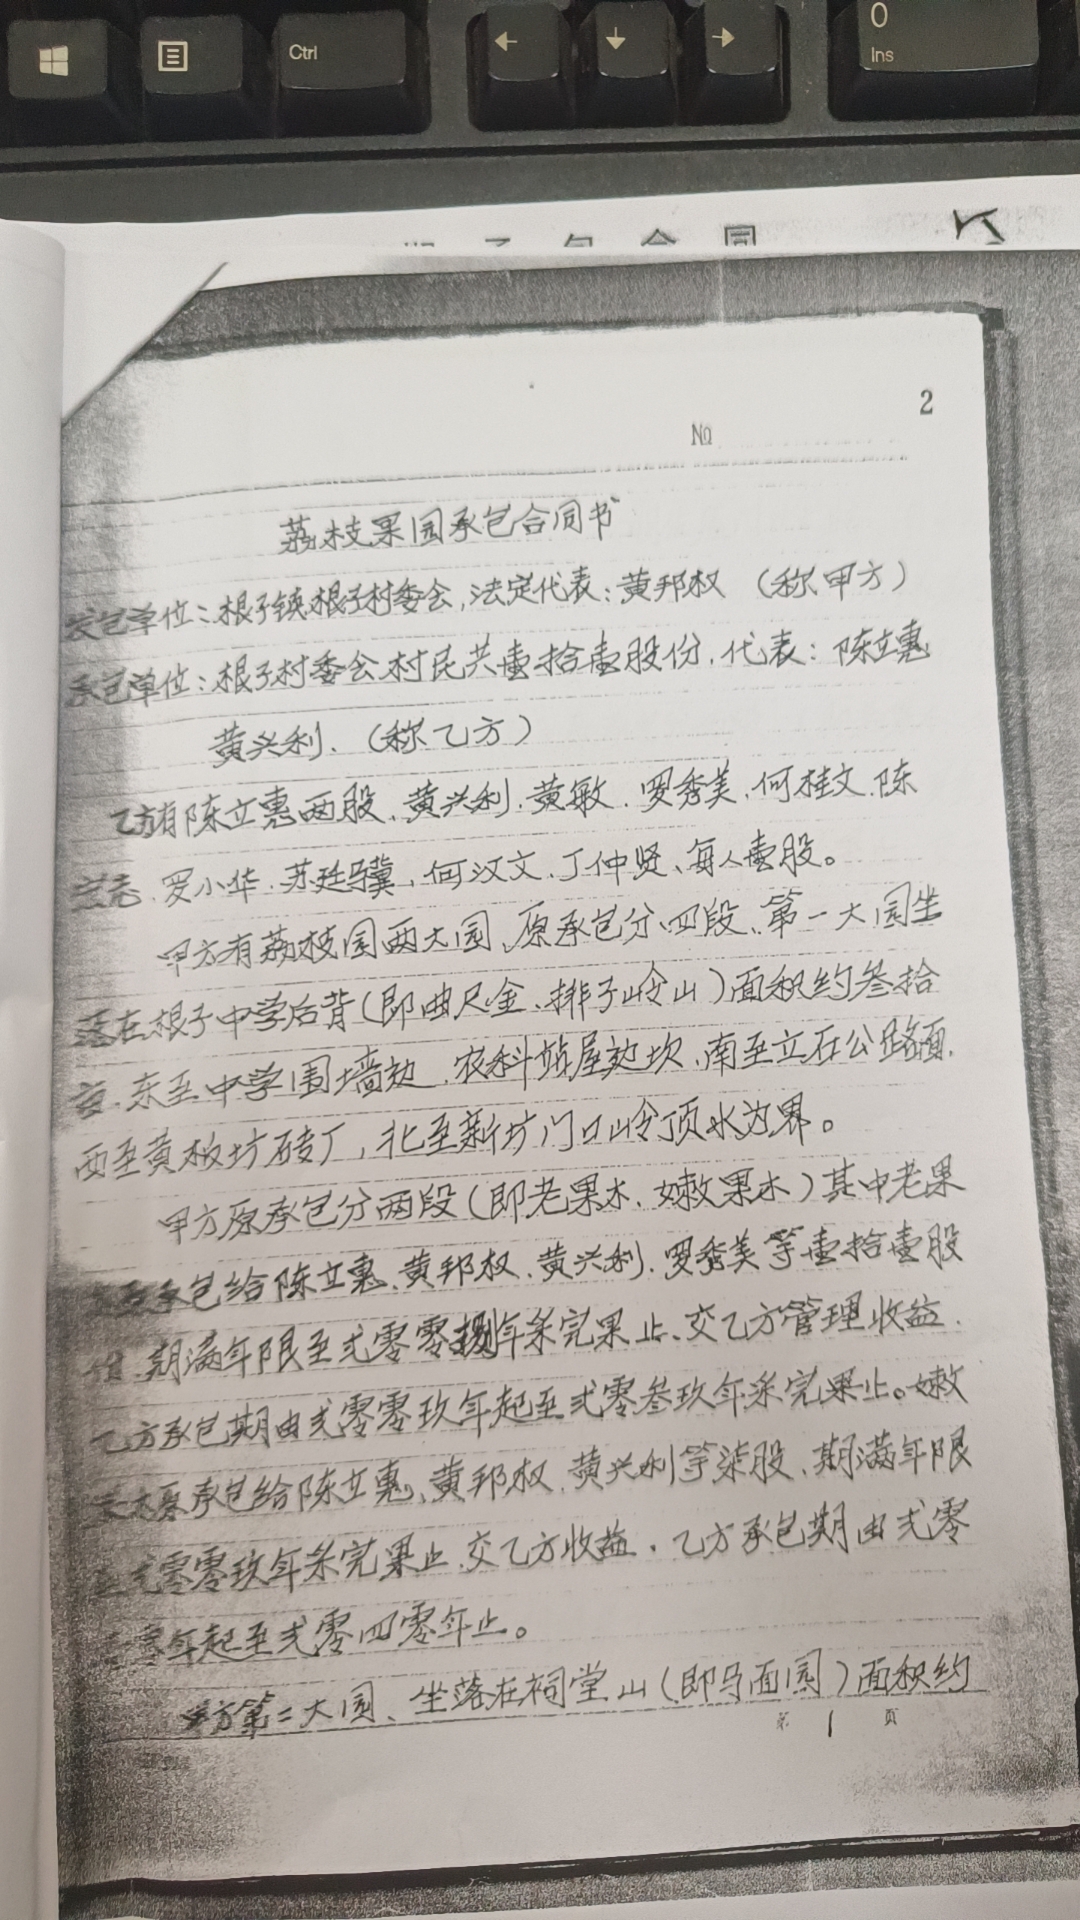 Ctrl
0
Ins
2
№
荔枝果园承包合同书
发包单位：根子镇根子村委会，法定代表：黄邦权（称甲方）
承包单位：根子村委会村民共壹拾壹股份，代表：陈立惠
黄兴利、（称乙方）
乙方有陈立惠两股、黄兴利、黄敏、罗秀美、何桂文、陈
罗小华、苏廷骥、何汉文、丁仲贤、每人壹股。
甲方有荔枝园两大园、原承包分四段、第一大园坐
落在根子中学后背（即曲尺金、排子岭山）面积约叁拾
亩、东至中学围墙边、农科站屋边坎、南至立石公路面、
西至黄板坊砖厂，北至新坊门口岭顶水为界。
甲方原承包分两段（即老果木、嫩果木）其中老果
承包给陈立惠、黄邦权、黄兴利、罗秀美等壹拾壹股
期满年限至弍零零捌年条完果止、交乙方管理收益、
乙方承包期由弍零零玖年起至弍零叁玖年条完果止。嫩
果木原承包给陈立惠、黄邦权、黄兴利等柒股、期满年限
至弍零零玖年条完果止、交乙方收益、乙方承包期由弍零
零年起至弍零四零年止。
甲方第二大园、坐落在祠堂山（即马面园）面积约
第 1 页